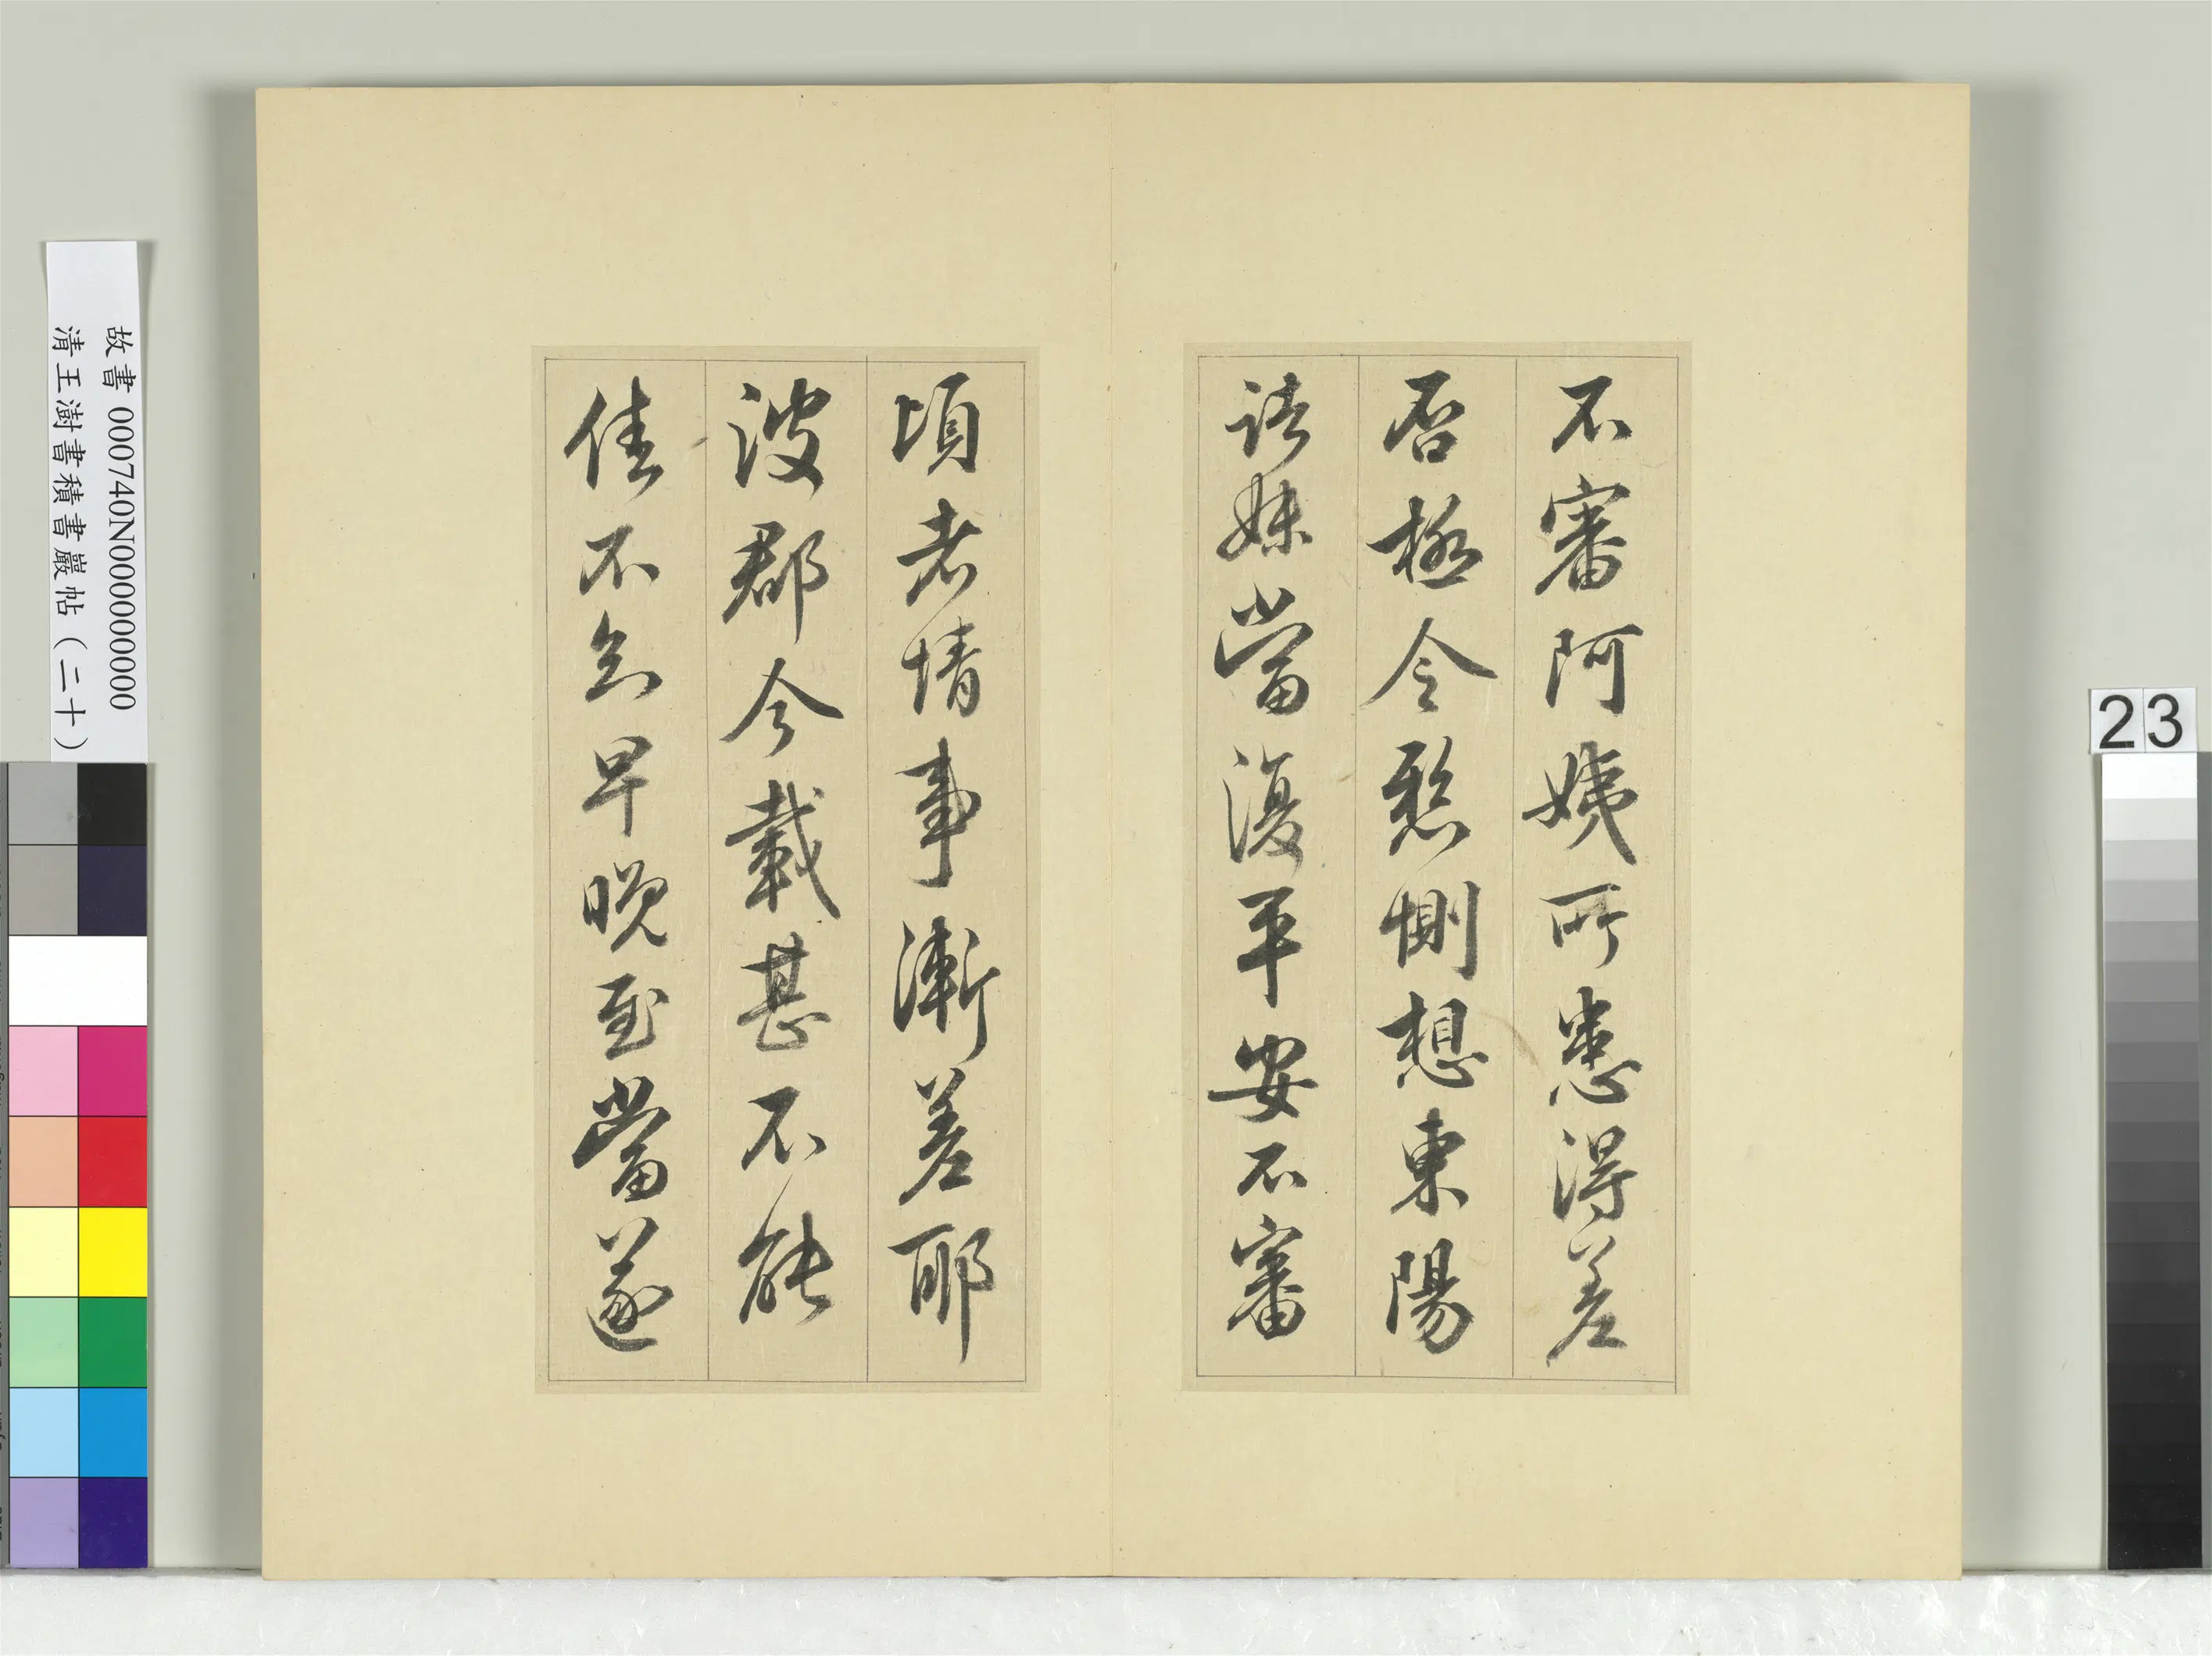 不審阿姨所患得差
否極令愁惻想東陽
諸妹當復平安不審
頃者情事漸差耶
彼郡今載甚不能
佳不知早晚至當遂
故書 000740N000000000
清王澍書積書巖帖（二十）
23